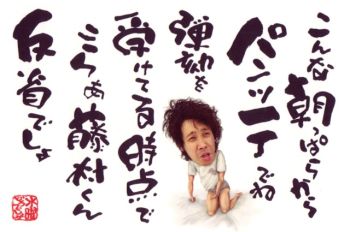 こんな朝っぱらから
パンツ一丁でね
弾劾を
受けてる時点で
こらぁ藤村くん
反省でしょ